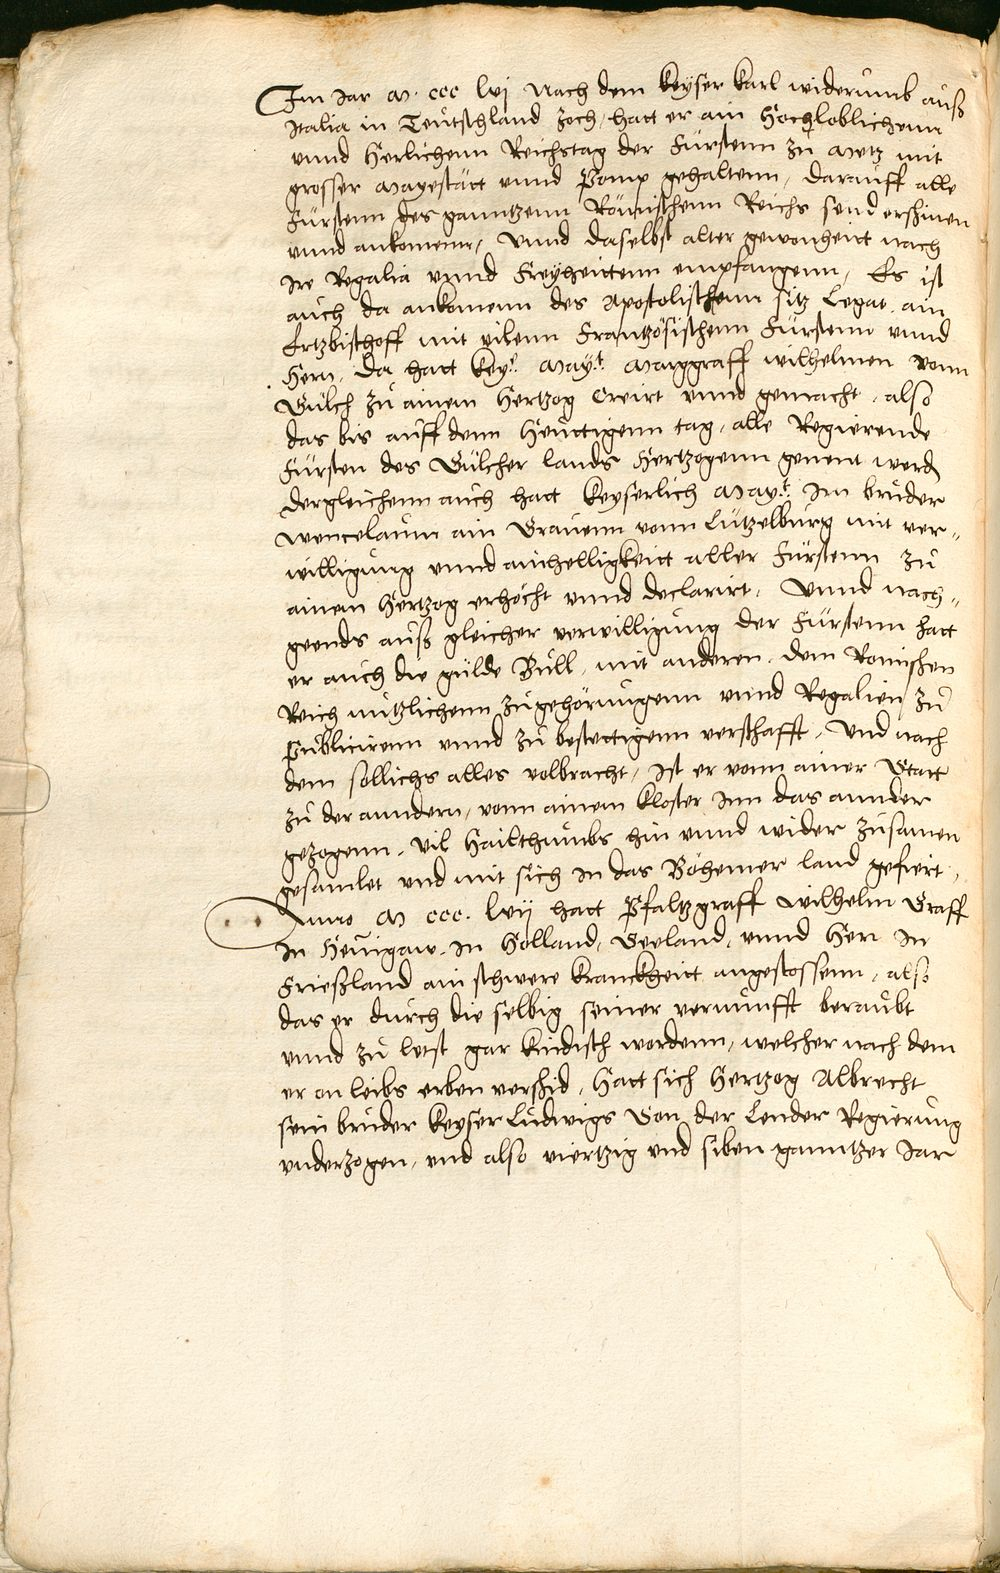 Im Jar M. ccc lvj Nach dem Keyser Karl widerumb auß
Italia in Teutschland zoch, hatt er ain Hochloblichenn
vnnd Herlichenn Reichstag der Fürstenn zu Metz mit
grosser Mayestätt vnnd Pomp gehaltenn, darauff alle
Fürstenn des ganntzenn Römischenn Reichs send erschinen
vnnd ankomenn, Vnnd daselbst alter gewonheitt nach
Ire Regalia vnnd Freyheittenn empfangenn, Es ist
auch da ankomenn des Apostolischenn sitz Legat, ain
Ertzbischoff mit vilenn Frantzösischenn Fürstenn vnnd
Hern, Da hatt Key: May:t Marggraff Wilhelmen vonn
Gülch zu ainem Hertzog Creirt vnnd gemacht, also
das bis auff denn Heuttigenn tag, alle Regierende
Fürsten des Gülcher lands Hertzogenn genent werd
dergleichenn auch hatt Keyserlich May:t Im bruder
Wencelaum ain Grauenn vonn Lützelburg mit ver„
willigung vnnd ainhelligkeitt aller Fürstenn zu
ainem Hertzog erhöcht vnnd declarirt, Vnnd nach„
geends auß gleicher verwilligung der Fürstenn hatt
er auch die gulde Bull, mit anderen, dem Romischen
Reich nutzlichenn zugehörungenn vnnd Regalien zu
Publicirenn vnnd zu bestettigenn verschafft, Vnd nach
dem sollichs alles volbracht, Ist er vonn ainer Statt
zu der anndern, vonn ainem Kloster Inn das annder
gezogenn, Vil Hailthumbs hin vnnd wider zusamen
gesamlet vnd mit sich In das Böhemer land gefiert,
Anno M ccc. lvij hatt Pfaltzgraff Wilhelm Graff
In Henigaw, In Holland, Seeland, vnnd Herr In
Frießland ain schwere Kranckheitt angestossenn, also
das er durch die selbig seiner vernunfft beraubt
vnnd zu letst gar kindisch wordenn, welcher nach dem
er on leibs erben verschid, Hatt sich Hertzog Albrecht
sein bruder Keyser Ludwigs Son, der Lender Regierung
vnderzogen, vnd also viertzig vnd siben ganntzer Jar